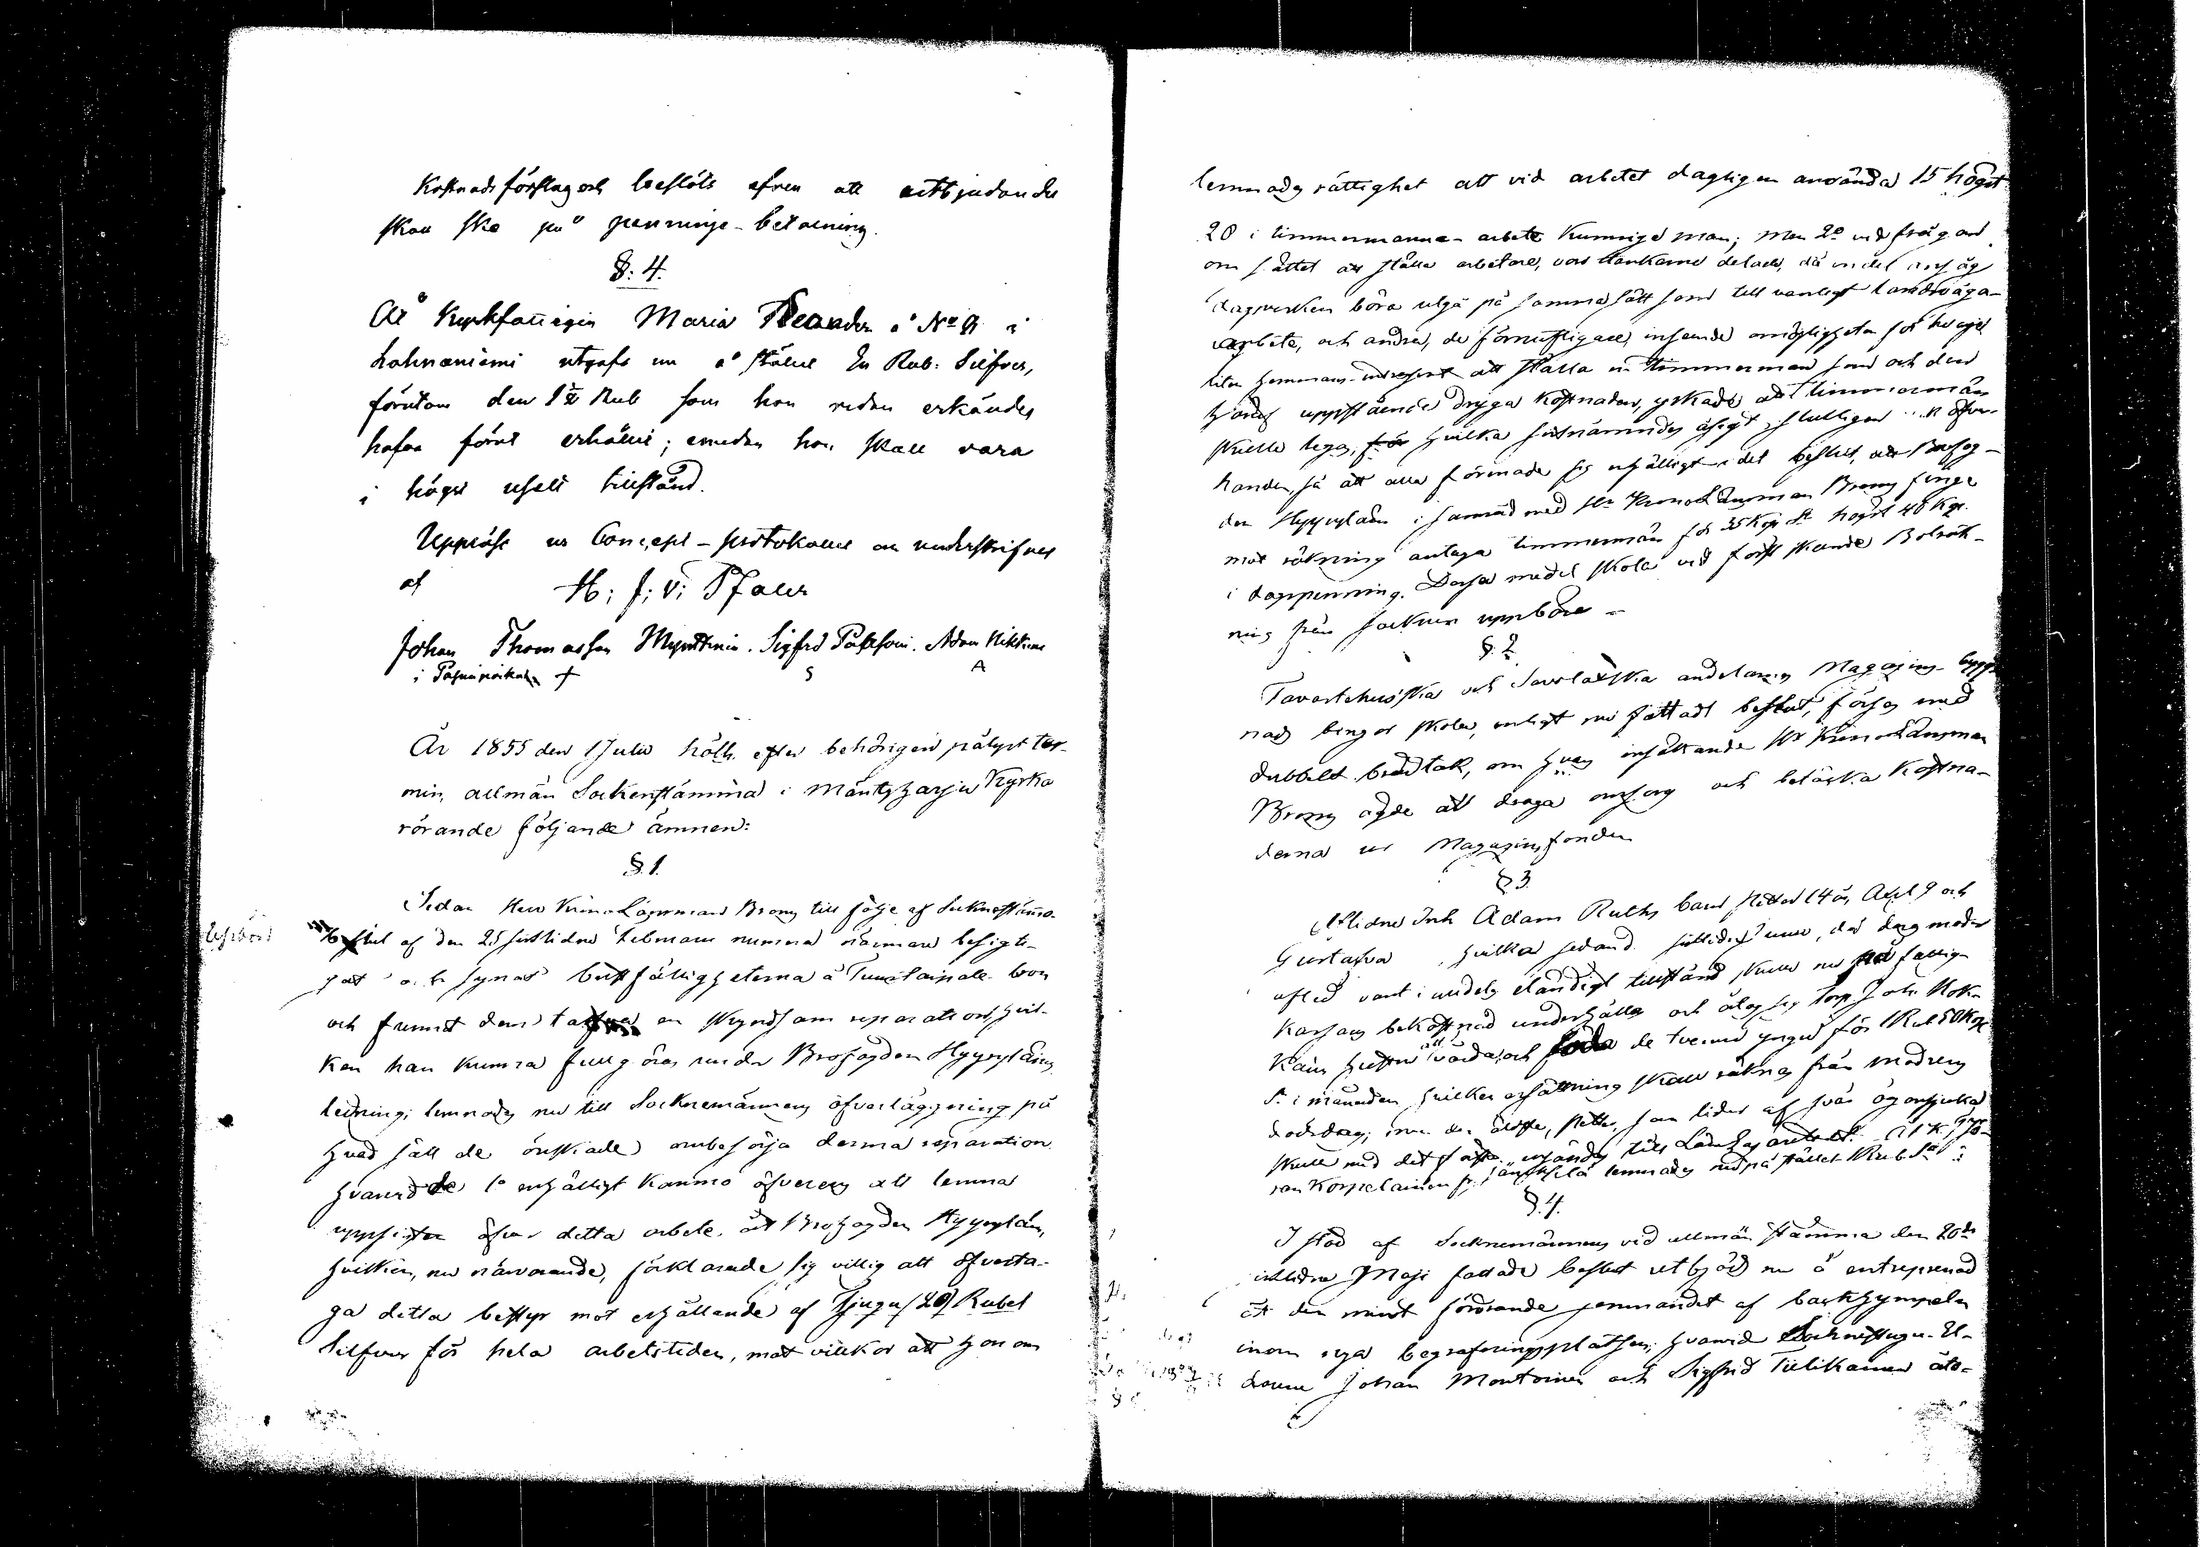 Kostnadsförslag och beslöts äfven att utbjudandet
skall ske på penninge-betalning.
§. 4.
Åt Kyrkfattigin Maria Theander å No 9 i
Lahnaniemi utgafs nu å stället En Rub. Silfver,
förutom den 1 Rub som hon redan erkändes
hafva förut erhållit; emedan hon skall vara
i högst uselt tillstånd.
Uppläst ur Concept-protokollet och underskrifvet
af H: J: v: Pfaler
Johan Thomasson Mynttinen. Sigfrid Pakkoin. Adam Nikkine
i Pasinpoika + S A
År 1855 den 1 Julii hölls efter behörigen pålyst ter-
min, allmän Sockenstämma i Mäntyharju Kyrka
rörande följande ämnen:
§. 1.
Sedan Herr Krono Länsman Brony till följe af Sockenstämmo-
beslut af den 25 sistlidne Februarii numera närmare besigti-
gat och synat bristfälligheterna å Tuustaipale bron
och funnit den tarfva en skyndsam reparation, hvil-
ken han kunna fullgöras under Brofogden Hyyryläins
ledning; lemnades nu till Sockenemännens öfverläggning på
hvad sätt de önskade ombesörja denna reparation
hvarvid de 1o enhälligt kommo öfverens att lemna
uppsigten öfver detta arbete åt Brofogden Hyyryläin,
hvilken, nu närvarande, förklarade sig villig att öfverta-
ga detta bestyr mot erhållande af Tjugu (20) Rubel
Silfver för hela arbetstiden, mot villkor att honom
lemnades rättighet att vid arbetet dagligen använda 15 högst
20 i timmermanna-arbete kunnige män; men 2o vid frågan
om sättet att ställa arbetare, voro tankarne delade, då en del ansåg
dagsverken böra utgå på samma sätt som till vanligt Landsväga-
arbete, och andra, de förnuftigare, inseende omöjligheten för hvarje
liten hemmans-intressent att ställa en timmerman samt och den
häraf uppstående dryga kostnaden, yrkade att timmermän
skulle legas, för hvilka sistnämndes åsigt slutligen öfver-
handen, så att alla förenade sig enhälligt i det beslut, att Brofog-
den Hyyryläin i samråd med Hr Krono Länsman Brony finge
mot räkning antaga timmermän för 35 Kop St högst 40 Kop.
i dagspenning. Dessa medel skola vid först skeende Bolräk-
ning från socknen uppbäras
§. 2
Tavastehusska och Savolaxska andelarnes Magazins-bygg-
nad bingar skola, enligt nu fattadt beslut, förses med
dubbelt brädtak, om hvars inställande Hr Krono Länsman
Brony ägde att draga omsorg och betäcka kostna-
derna ur Magazinsfonden
§ 3.
Aflidne Inh Adam Ruths barn Petter 14 år, Axel 9 och
Gustafva, hvilka sedan sistlidne, då deras moder
afled varit i mindes eländigt tillstånd skulle nu på fattig-
kassans bekostnad underhållas och åtog sig Torp Joh: Kok-
käin hustru att vårda och föda de tvenne yngre för 1 Rub 50 Kop
S. i månaden hvilken ersättning skall räknas från modrens
dödsdag; men den äldste, Petter, som lider af svår ögonsjuka
skulle med det första afsändas till Länshasarettet. Åt K. Jo-
han Korpelainen fr. Jänskylä lemnades nu på stället 1 Rub Sr
§. 4.
I stöd af Sockenemännens vid allmän stämma den 20de
sistlidne Maji fattade beslut utbjöds nu å entreprenad
åt den minst fordrande jemnandet af backhympeln
inom nya begrafningsplatsen; hvarvid Sockneskräd. El-
darne Johan Montoinen och Sigfrid Tiilikainen åto-